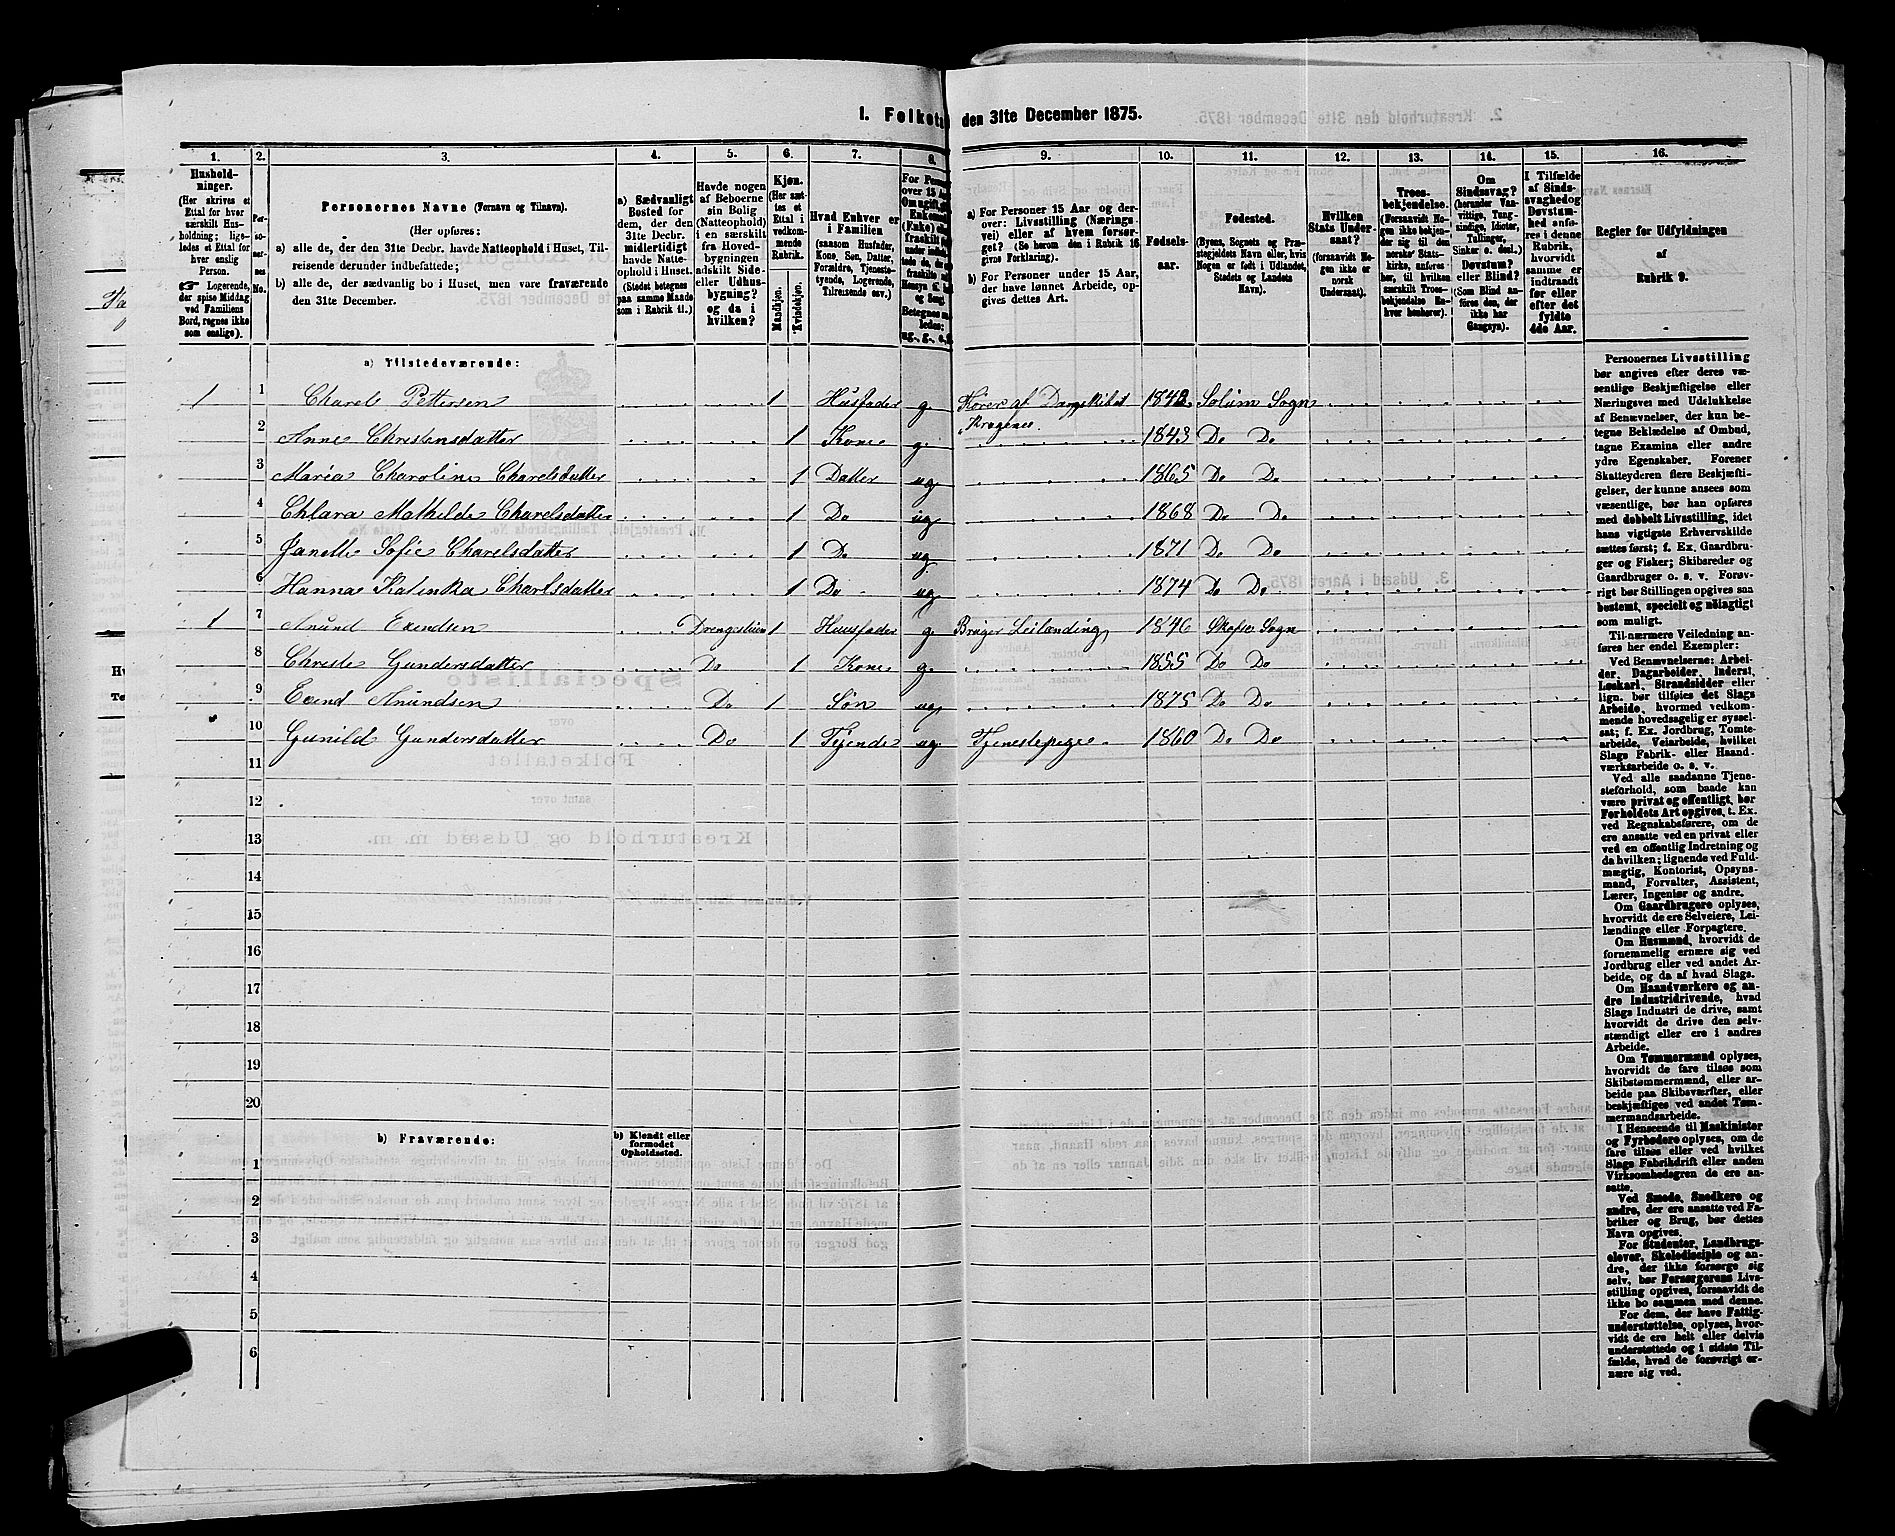 1. Folketæ den 31te December 1875.
1. 2. 3. 4. 5. 6. 7. 8. 9. 10. 11. 12. 13. 14. 15. 16.
Hushold-
ninger.
(Her skrives et
Ettal for hver
særskilt Hus-
holdning; lige-
ledes et Ettal for
hver enslig
Person.
☞ Logerende,
der spise Middag
ved Familiens
Bord, regnes ikke
som enslige).
Per-
so-
ner-
nes
No.
Personernes Navne (Fornavn og Tilnavn).
(Her opføres:
a) alle de, der den 31te Decbr. havde Natteophold i Huset, Til-
reisende derunder indbefattede;
b) alle de, der sædvanlig bo i Huset, men vare fraværende
den 31te December.
a) Sædvanligt
Bosted for
dem, der den
31te Decbr.
midlertidigt
havde Natte-
ophold i Huset.
(Stedet betegnes
paa samme Maade
som i Rubrik 11.)
Havde nogen
af Beboerne
sin Bolig
(Natteophold)
i en særskilt
fra Hoved-
bygningen
adskilt Side-
eller Udhus-
bygning?
og da i
hvilken?
Kjøn.
(Her sæt-
tes et
Ettal i
vedkom-
mende
Rubrik.
Mandkjøn.
Kvindekjøn.
Hvad Enhver er
i Familien
(saasom Husfader,
Kone, Søn, Datter,
Forældre, Tjeneste-
tyende, Logerende,
Tilreisende osv.)
a) For Personer 15 Aar og der-
over: Livsstilling (Nærings-
vei) eller af hvem forsør-
get? (Se herom den i Rubrik 16
givne Forklaring).
b) For Personer under 15 Aar,
der have lønnet Arbeide, op-
gives dettes Art.
Fødsels-
aar.
Fødested.
(Byens, Sognets og Præ-
stegjeldets Navn eller, hvis
Nogen er født i Udlandet,
Stedets og Landets
Navn).
Hvilken
Stats Under-
saat?
(forsaavidt No-
gen ikke er
norsk
Undersaat).
Troes-
bekjendelse.
(Forsaavidt No-
gen ikke bekjen-
der sig til den
norske Stats-
kirke, anføres
her, til hvilken
særskilt Troes-
bekjendelse En-
hver henhører).
Om
Sindssvag?
(herunder Van-
vittige, Tung-
sindige, Idioter,
Tullinger,
Sinker o. desl.)
Døvstum?
eller Blind?
(Som Blind an-
føres den, der
ikke har
Gangsyn).
I Tilfælde
af Sinds-
svaghed og
Døvstum-
hed anfø-
res i denne
Rubrik,
hvorvidt
samme er
indtraadt
før eller
efter det
fyldte
4de Aar.
Regler for Udfyldningen
af
Rubrik 9.
a) Tilstedeværende:
1 1 Charels Pettersen 1 Husfader g. 1842 Solum Sogn
2 Anne Christensdatter 1 Kone g. 1843 Do Do
3 Maria Charoline Charelsdatter 1 Datter ug 1865 Do Do
4 Chlara Mathilde Charelsdatter 1 Do ug 1868 Do Do
5 Janette Sofie Charelsdatter 1 Do ug. 1871 Do Do
6 Hanna Katinka Charlsdatter 1 Do ug 1874 Do Do
1 7 Anund Evendsen 1 Huusfader g. Bruger Leilænding 1846 Sogn
8 Christe Gundersdatter Do 1 Kone g. 1855 Do Do
9 Evend Anundsen Do 1 Søn ug 1875 Do Do
10 Gunild Gundersdatter Do 1 ug. Tjenestepige 1860 Do Do
11
12
13
14
15
16
17
18
19
20
b) Fraværende:
b) Kjendt eller
formodet
Opholdssted.
1
2
3
4
5
6
Personernes Livsstilling
bør angives efter deres væ-
sentlige Beskjæftigelse eller
Næringsvei med Udelukkelse
af Benævnelser, der kun be-
tegne Beklædelse af Ombud,
tagne Examina eller andre
ydre Egenskaber. Forener
Skatteyderen flere Beskjæfti-
gelser, der kunne ansees som
væsentlige, bør han opføres
med dobbelt Livsstilling, idet
hans vigtigste Erhvervskilde
sættes først; f. Ex. Gaardbru-
ger og Fisker; Skibsreder og
Gaardbruger o. s. v. Forøv-
rigt bør Stillingen opgives saa
bestemt, specielt og nøiagtigt
som muligt.
Til nærmere Veiledning an-
føres her endel Exempler:
Ved Benævnelserne: Arbei-
der, Dagarbeider, Inderst,
Løskarl, Strandsidder eller
lign. bør tilføies det Slags
Arbeide, hvormed vedkom-
mende hovedsagelig er syssel-
sat; f. Ex. Jordbrug, Tomte-
arbeide, Veiarbeide, hvilket
Slags Fabrik- eller Haand-
værksarbeide o. s. v.
Ved alle saadanne Tjene-
steforhold, som baade kan
være privat og offentligt, bør
Forholdets Art opgives, t. Ex.
ved Regnskabsførere, om de
ere ansatte ved en privat eller
ved en offentlig Indretning og
da hvilken; lignende ved Fuld-
mægtig, Kontorist, Opsyns-
mand, Forvalter, Assistent,
Lærer, Ingeniør og andre.
Om Gaardbrugere oplyses,
hvorvidt de ere Selveiere, Lei-
lændinge eller Forpagtere.
Om Husmænd, hvorvidt de
fornemmelig ernære sig ved
Jordbrug eller ved andet Ar-
beide, og da af hvad Slags.
Om Haandværkere og an-
dre Industridrivende, hvad
Slags Industri de drive, samt
hvorvidt de drive den selv-
stændigt eller ere i andres
Arbeide.
Om Tømmermænd oplyses,
hvorvidt de fare tilsøs som
Skibstømmermænd, eller ar-
beide paa Skibsværfter, eller
beskjæftiges ved andet Tøm-
mermandsarbeide.
I Henseende til Maskinister
og Fyrbødere oplyses, om de
fare tilsøs eller ved hvilket
Slags Fabrikdrift eller anden
Virksomhedsgren de ere an-
satte.
Ved Smede, Snedkere og
andre, der ere ansatte ved Fa-
briker og Brug, bør dettes
Navn opgives.
For Studenter, Landbrugs-
elever, Skoledisciple og an-
dre, der ikke forsørge sig
selv, bør Forsørgerens Livs-
stilling opgives, forsaavidt de
ikke bo sammen med denne.
For dem, der have Fattig-
understøttelse, oplyses, hvor-
vidt de ere helt eller delvis
understøttede og i sidste Til-
fælde, hvad de forøvrigt er-
nære sig ved.